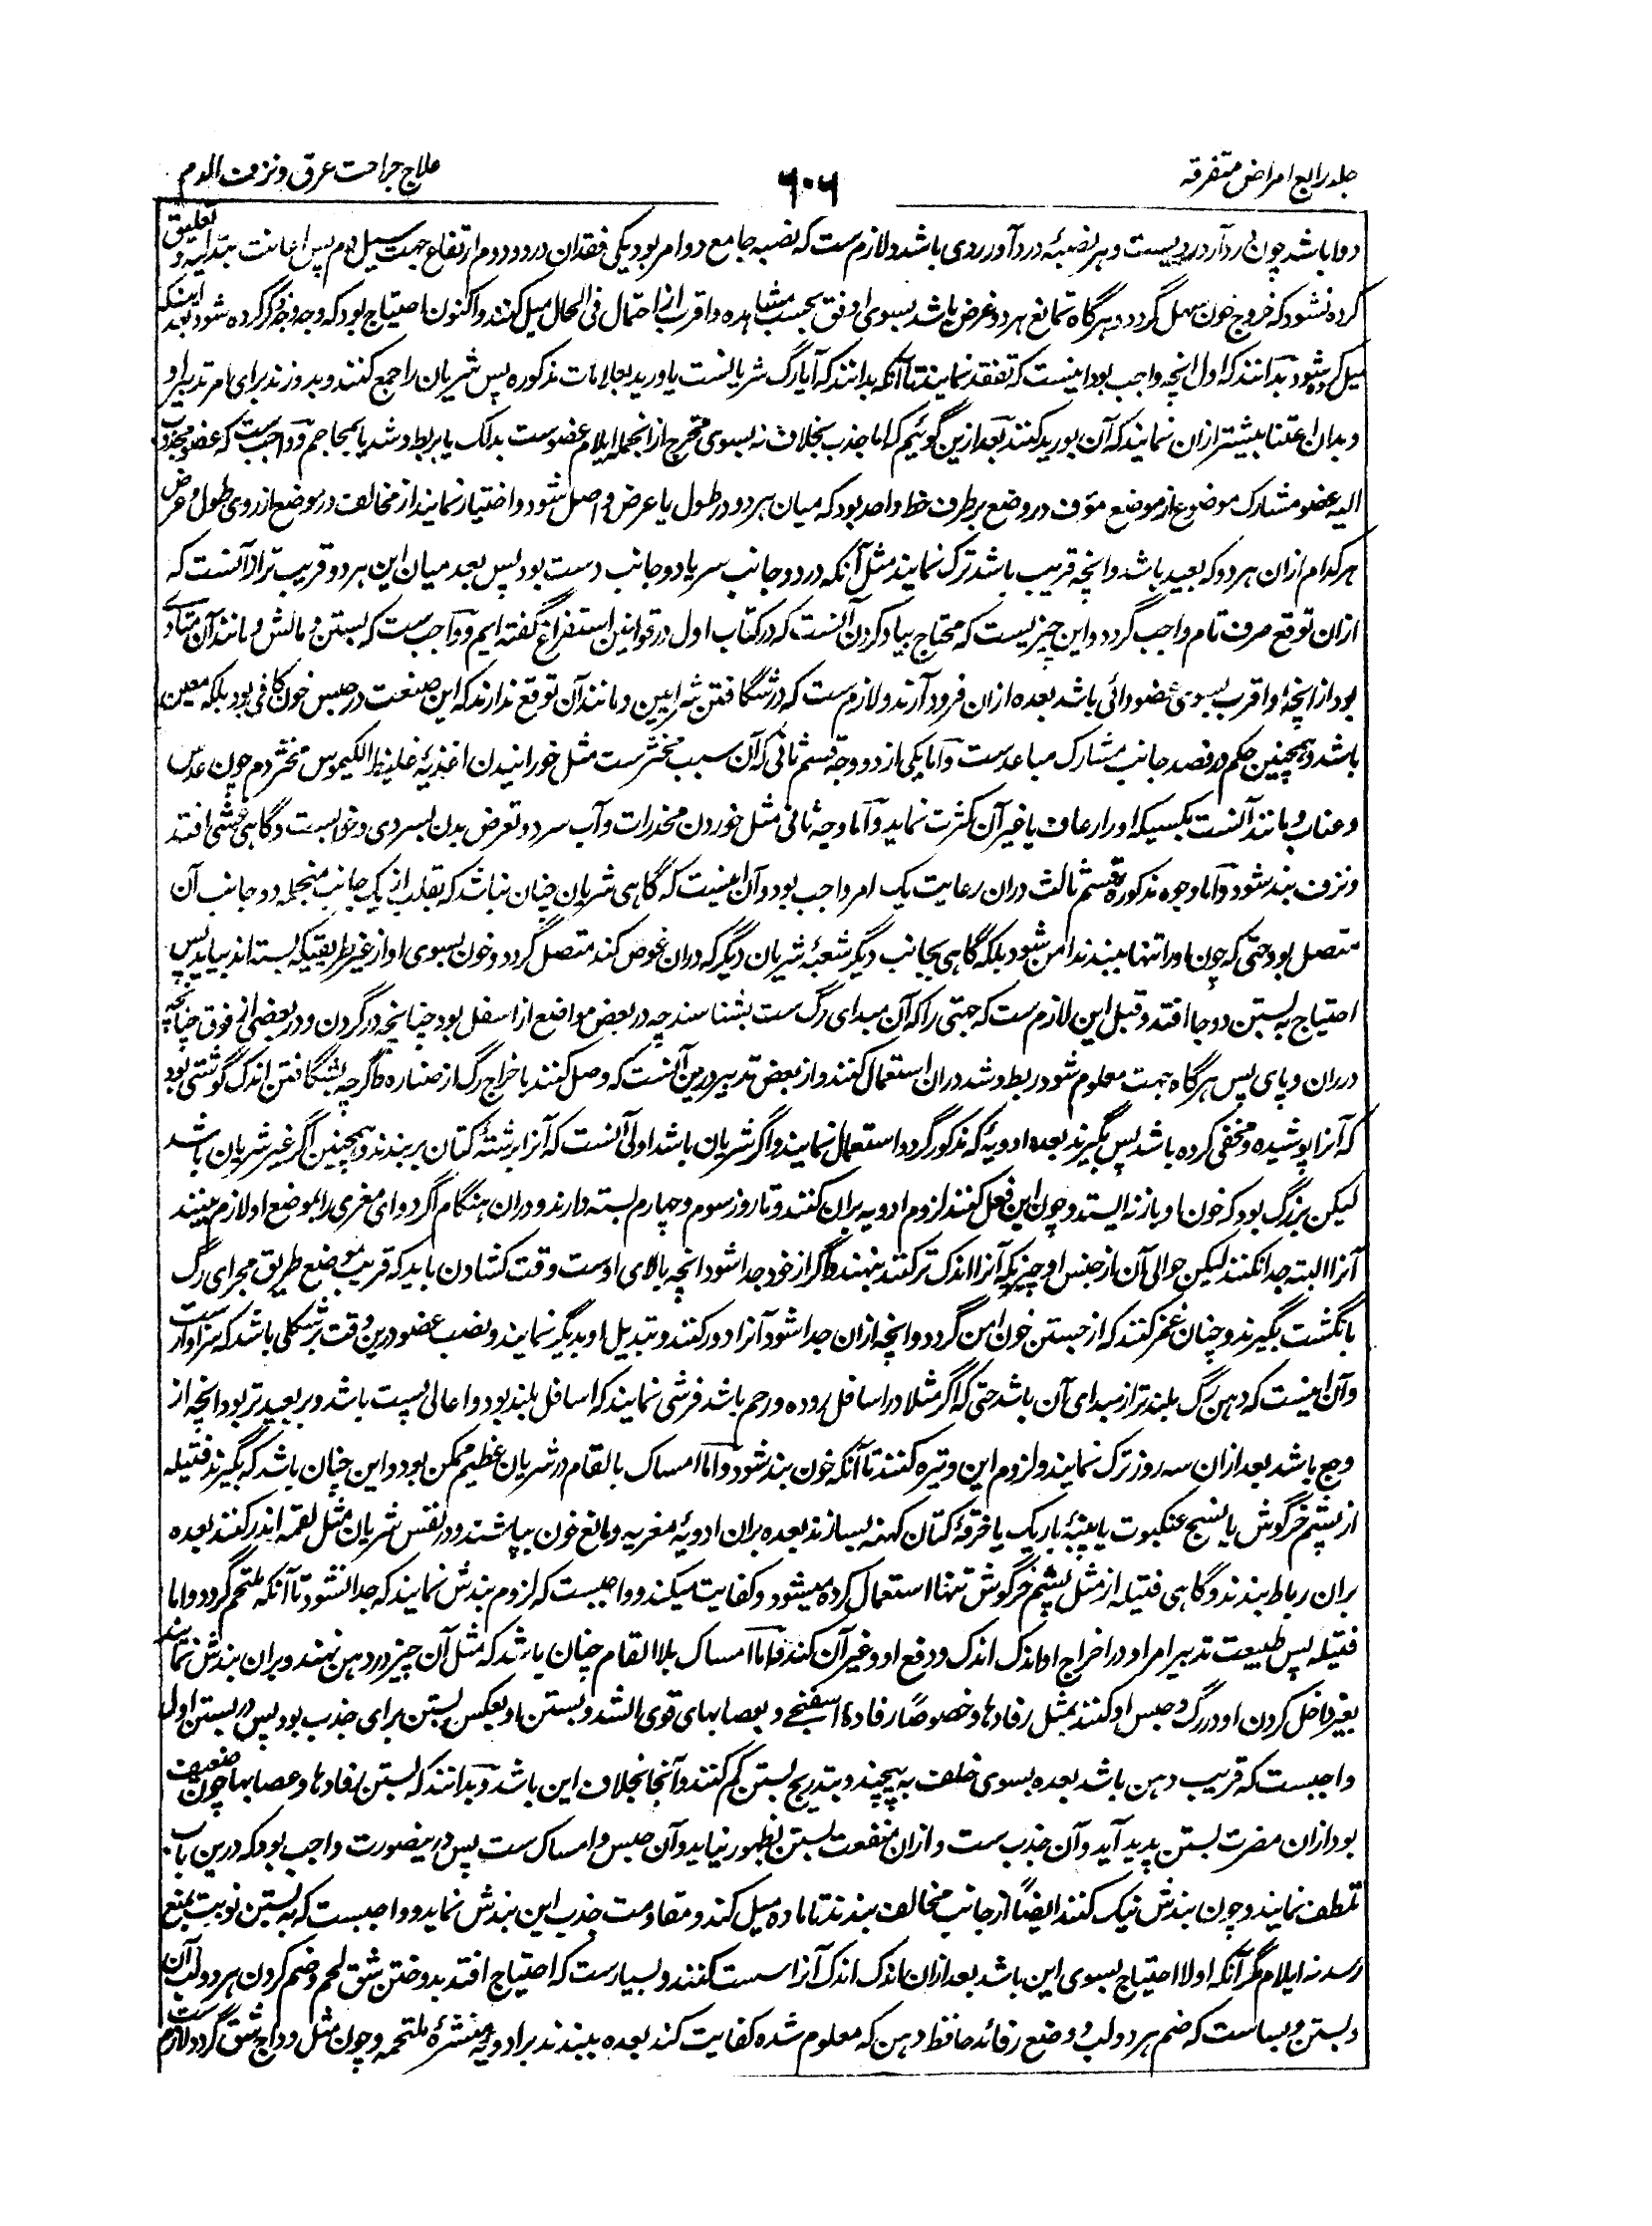 جلد رابع امراض متفرقه
۶۰۶
علاج جراحت عرق و نزف الدم
دوا باشد چون رد آرد درد نیست و هر نصبهٔ درد آور ردی باشد و لازم ست که نصبه جامع دو امر بود یکی فقدان درد و دوم ارتفاع جهت سیل دم پس اعانت بتدلیه و تعلیق
کرده نشود که خروج خون سهل گردد و هرگاه تمانع هر دو غرض باشد بسوی اوفق بحسب مشاهده و اقرب از احتمال فی الحال میل کنند و اکنون احتیاج بود که وجه وجه ذکر کرده شود بعد اینکه
میل کرده شود بدانند که اول انچه واجب بود اینست که تفقد نمایند تا آنکه بدانند که آیا رگ شریانست یا ورید بعلامات مذکوره پس شریان را جمع کنند و بدوزند برای امر تدبیر او
و بدان اعتنا بیشتر ازان نمایند که آن بورید کنند بعد ازین گوئیم که اما جذب بخلاف نه بسوی مخرج از انجمله ایلام عضوست بدلک یا بربط و شد یا بمحاجم و واجبست که عضو مجذوب
الیه عضو مشارک موضوع از موضع مؤف در وضع بر طرف خط واحد بود که میان هر دو در طول یا عرض واصل شود و اختیار نمایند از مخالفت در موضع از روی طول و عرض
هر کدام ازان هر دو که بعید باشد و انچه قریب باشد ترک نمایند مثل آنکه در دو جانب سر یا دو جانب دست بود پس بعد میان این هر دو قریب تر ازانست که
ازان توقع صرف تام واجب گردد و این چیزیست که محتاج بیاد کردن آنست که در کتاب اول در قوانین استفراغ گفته ایم و واجب ست که بستن و مالش و مانند آن متادی
بود از انچه او اقرب بسوی عضو دائی باشد بعده ازان فرود آرند و لازم ست که در شگافتن شرایین و مانند آن توقع ندارند که این صنعت در حبس خون کافی بود بلکه معین
باشد و همچنین حکم در فصد جانب مشارک مباعدست و اما یکی از دو وجه قسم ثانی که آن سبب مخثرست مثل خورانیدن اغذیهٔ غلیظ الکیموس مخثر دم چون عدس
و عناب و مانند آنست بکسیکه او را رعاف یا غیر آن بکثرت نماید و اما وجه ثانی مثل خوردن مخدرات و آب سرد و تعرض بدن بسردی و خوابست و گاهی غشی افتد
و نزف بند شود و اما وجوه مذکوره قسم ثالث دران رعایت یک امر واجب بود و آن اینست که گاهی شریان چنان نباشد که بقلب از یک جانب منجمله دو جانب آن
متصل بود حتی که چون او را تنها ببندند امن شود بلکه گاهی بجانب دیگر شعبهٔ شریان دیگر که دران غوص کند متصل گردد و خون بسوی او از غیر طریقیکه بسته اند بیاید پس
احتیاج به بستن دو جا افتد و قبل این لازم ست که جهتی را که آن مبدای رگ ست بشناسند چه در بعض مواضع از اسفل بود چنانچه در گردن و در بعضی از فوق چنانچه
در ران و پای پس هرگاه جهت معلوم شود ربط و شد دران استعمال کنند و از بعض تدبیر درین آنست که وصل کنند باخراج رگ از صناره اگرچه بشگافتن اندک گوشتی بود
که آنرا پوشیده و مخفی کرده باشد پس بگیرند بعده ادویهٔ که مذکور گردد استعمال نمایند و اگر شریان باشد اولی آنست که آنرا برشتهٔ کتان بربندند و همچنین اگر غیر شریان باشد
لیکن بزرگ بود که خون او باز نه ایستد و چون این فعل کنند لزوم ادویه بران کنند و تا روز سوم و چهارم بسته دارند و دران هنگام اگر دوای مغری را بموضع او لازم بینند
آنرا البته جدا نکنند لیکن حوالی آن از جنس او چیزیکه آنرا اندک تر کنند بنهند و اگر از خود جدا شود انچه بالای اوست وقت کشادن باید که قریب بموضع طریق مجرای رگ
بانگشت بگیرند و چنان غمز کنند که از جستن خون امن گردد و انچه ازان جدا شود آنرا دور کنند و تبدیل او بدیگر نمایند و نصب عضو درین وقت بر شکلی باشد که سزاوارست
و آن اینست که دهن رگ بلندتر از مبدای آن باشد حتی که اگر مثلا در اسافل روده و رحم باشد فرشی نمایند که اسافل بلند بود و اعالی پست باشد و بر بعید تر بود انچه از
وجع باشد بعد ازان سه روز ترک نمایند و لزوم این وتیره کنند تا آنکه خون بند شود و اما امساک بالقام در شریان عظیم ممکن بود و این چنان باشد که بگیرند فتیله
از پشم خرگوش یا نسج عنکبوت یا پنبهٔ باریک یا خرقهٔ کتان کهنه بسازند بعده بران ادویهٔ مغریه و مانع خون بپاشند و در نفس شریان مثل لقمه اندر کنند بعده
بران رباط بندند و گاهی فتیله از مثل پشم خرگوش تنها استعمال کرده میشود و کفایت میکند و واجبست که لزوم بندش نمایند که جدا نشود تا آنکه ملتحم گردد و اما
فتیله پس طبیعت تدبیر امر او در اخراج او اندک اندک و دفع او و غیر آن کند و اما امساک بلا القام چنان باشد که مثل آن چیز در دهن نهند و بران بندش نمایند
بغیر داخل کردن او در رگ و حبس او کنند بمثل رفادها و خصوصاً رفادهٔ اسفنجی و بعصابهای قوی الشد و بستن او بعکس بستن برای جذب بود پس در بستن اول
واجبست که قریب دهن باشد بعده بسوی خلف به پیچند و بتدریج بستن کم کنند و آنجا بخلاف این باشد و بدانند که بستن رفادها و عصابها چون ضعیف
بود ازان مضرت بستن پدید آید و آن جذب ست و ازان منفعت بستن بظهور نیاید و آن حبس و امساک ست پس درینصورت واجب بود که درین باب
تلطف نمایند و چون بندش نیک کنند ایضاً از جانب مخالف بندند تا ماده میل کند و مقاومت جذب این بندش نماید و واجبست که به بستن نوبت بمنع
رسد نه ایلام مگر آنکه اولا احتیاج بسوی این باشد بعد ازان اندک اندک آنرا سست کنند و بسیارست که احتیاج افتد بدوختن شق لحم و ضم کردن هر دو لب آن
و بستن و بساست که ضم هر دو لب و وضع رفائد حافظ دهن که معلوم شده کفایت کند بعده ببندند بر ادویهٔ منثرهٔ ملتحمه و چون مثل وداج شق گردد لازم ست